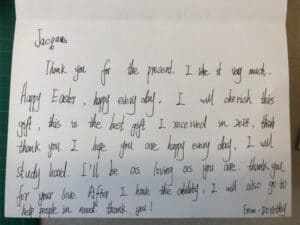 Jacques
Thank you for the present. I like it very much.
Happy Easter, happy every day. I will cherish this
gift, this is the best gift I received in 2018,
thank you I hope you are happy every day, I will
study hard. I'll be as loving as you are. thank you
for your love. After I have the ability, I will also go to
help people in need. thank you!
From: Dorothy